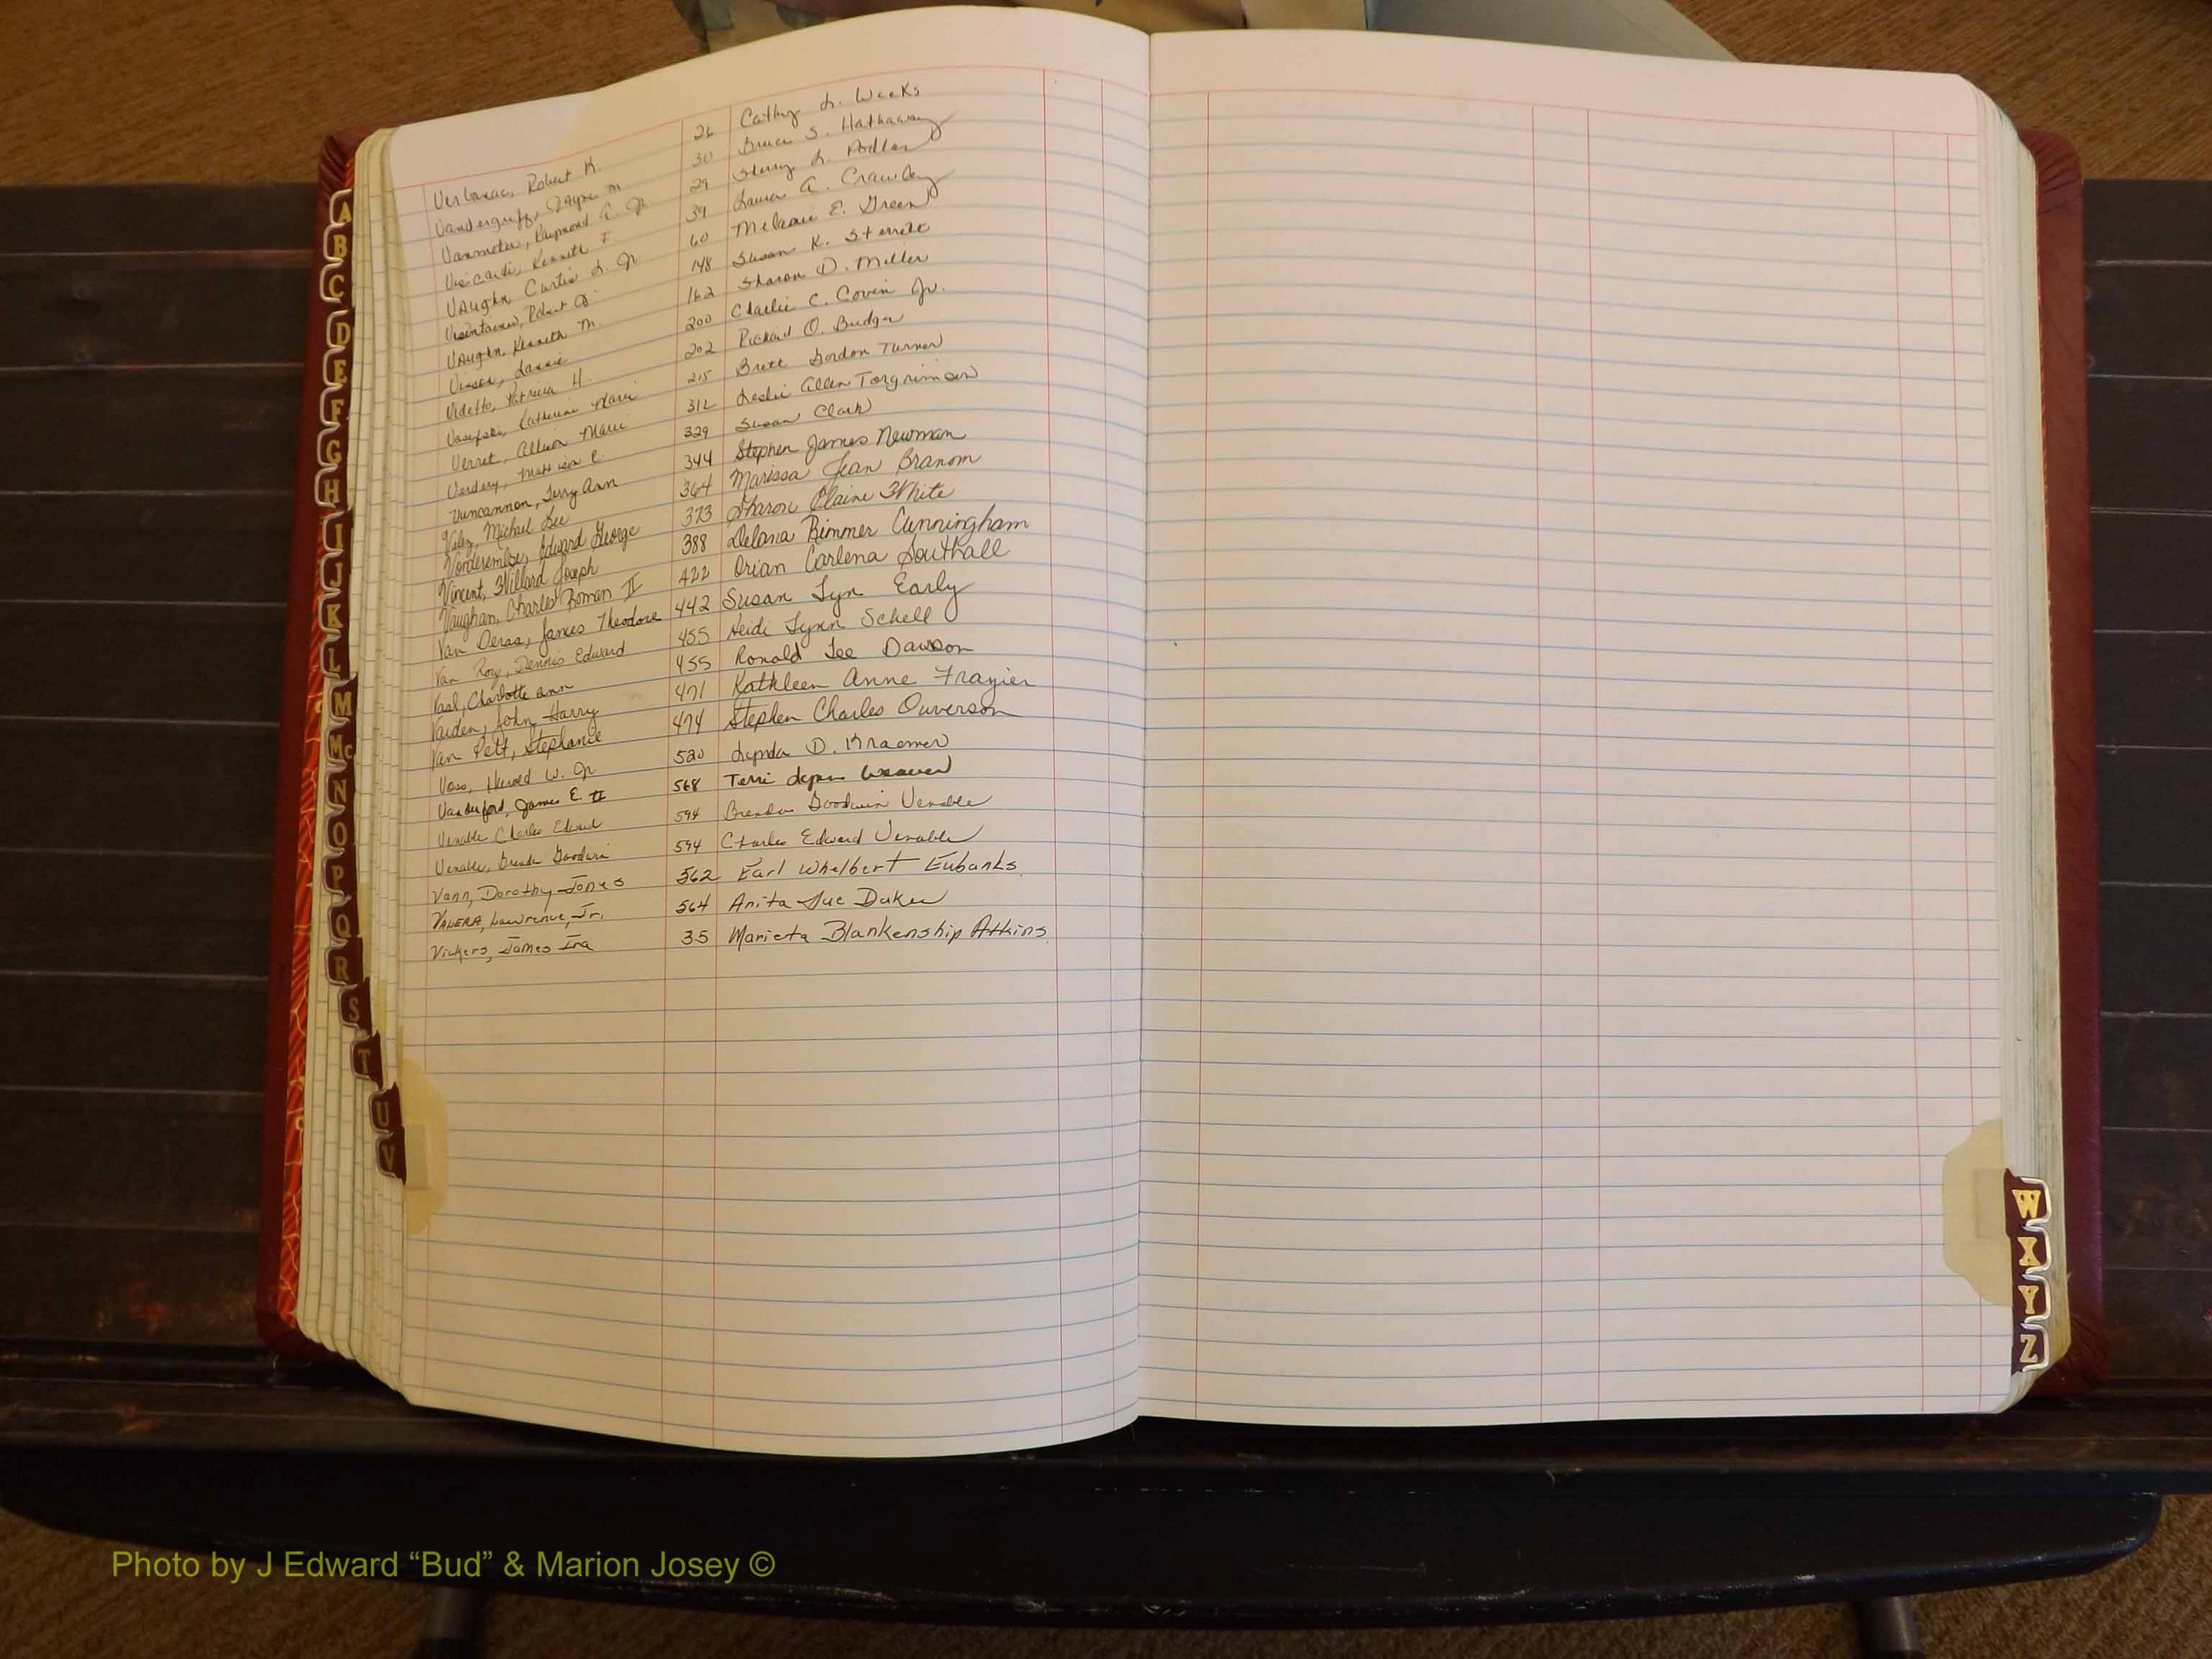 Robert K. 26 Cathy L. Weeks
Vandergriff, Wayne M. 30 Bruce S. Hathaway
Vanmeter, Raymond C. Jr 29 Sherry L.
Viscardi, Kenneth F. 39 Laura A. Crawley
Vaughn Curtis L. Jr 60 Melanie E. Green
Robert D. 148 Susan K. Sterrett
Vaughn, Kenneth M. 162 Sharon D. Miller
Lannie 200 Charlie C. Covin Jr.
Videtto, Patricia H. 202 Richard O. Badger
Katherine Marie 215 Brett Gordon Turner
Verret, Allison Marie 312 Leslie Allen Torgrimson
Verdery, Matt 329 Susan Clark
Vuncannon, Terry Ann 344 Stephen James Newman
Valez, Michael Lee 364 Marissa Jean Branom
Vonderembse, Edward George 373 Sharon Elaine White
Vincent, Willard Joseph 388 Delana Rimmer Cunningham
Vaughan, Charles Roman II 422 Orian Carlena Southall
Van Deraa, James Theodore 442 Susan Lyn Early
Van Roy, Dennis Edward 455 Heidi Lynn Schell
Vaal, Charlotte Ann 455 Ronald Lee Dawson
Vaiden, John Harry 471 Kathleen Anne Frazier
Van Pelt, Stephanie 474 Stephen Charles Ouverson
Voss, Harold W. Jr 520 Lynda D. Kraemer
Vanderford, James E. II 568 Terri Lynn Weaver
Venable Charles Edward 594 Brenda Goodwin Venable
Venable, Brenda Goodwin 594 Charles Edward Venable
Vann, Dorothy Jones 562 Earl Whelbert Eubanks
VALERA, Lawrence, Jr. 564 Anita Sue Duke
Vickers, James Ira 35 Marieta Blankenship Atkins
A
B
C
D
E
F
G
H
I
J
K
L
M
Mc
N
O
P
Q
R
S
T
U
V
W
X
Y
Z
Photo by J Edward “Bud” & Marion Josey ©